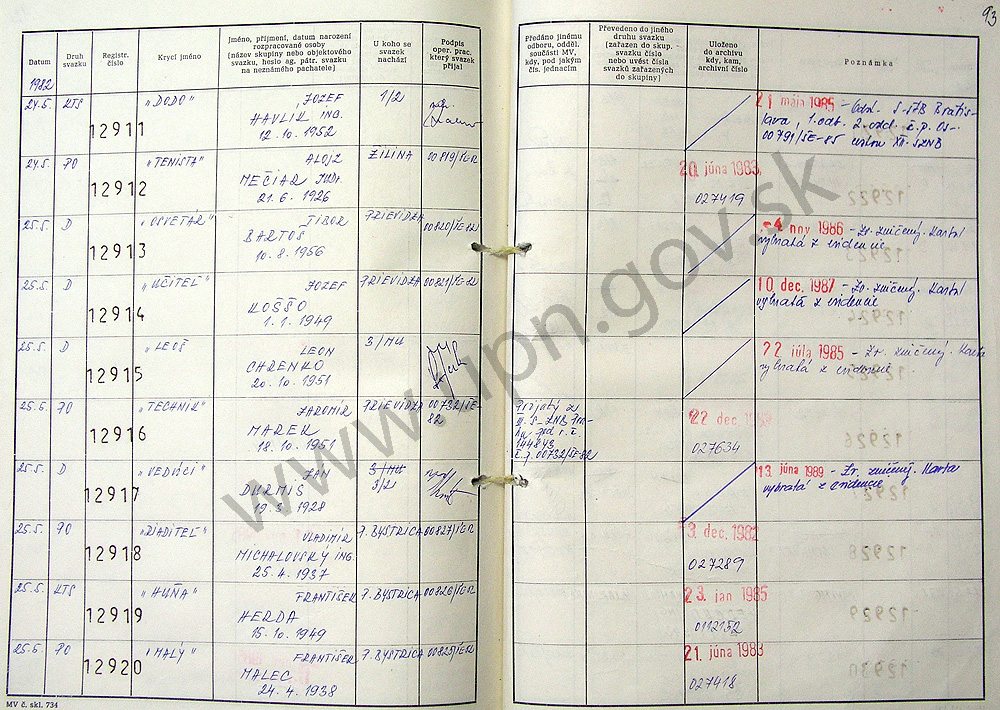 93
Datum
Druh
svazku
Registr.
číslo
Krycí jméno
Jméno, příjmení, datum narození
rozpracované osoby
(název skupiny nebo objektového
svazku, heslo ag. pátr. svazku
na neznámého pachatele)
U koho se
svazek
nachází
Podpis
oper. prac.
který svazek
přijal
Předáno jinému
odboru, odděl.
součásti MV,
kdy, pod jakým
čís. jednacím
Převedeno do jiného
druhu svazku
(zařazen do skup.
svazku číslo
nebo uvést čísla
svazků zařazených
do skupiny)
Uloženo
do archivu
kdy, kam,
archivní číslo
Poznámka
1982
24.5. KTS 12911 "DODO" JOZEF 1/2
HAVLÍK ING.
12.10.1952
21 mája 1985 - Odd. S-ŠZB Bratis-
lava, 1.odb. 2.odd. č.p. OS-
00791/ŠE-85
24.5. PO 12912 "TENISTA" ALOJZ ŽILINA
MEČIAR JUDr.
21.6.1926
20. júna 1983
027419
25.5. D 12913 "OSVETÁR" TIBOR PRIEVIDZA
BARTOŠ
10.8.1956
-4 nov 1986 - Zv. zničený. Karta
vybratá z evidencie
25.5. D 12914 "UČITEĽ" JOZEF PRIEVIDZA
KOŠŠO
1.1.1949
10 dec. 1987 - Zv. zničený. Karta
vybratá z evidencie
25.5. D 12915 "LEOŠ" LEON
CHRENKO
20.10.1951
22 júla 1985 - Zv. zničený. Karta
vybratá z evidencie
25.5. PO 12916 "TECHNIK" JAROMÍR PRIEVIDZA 00732/ŠE-
82
MAREK
18.10.1951
č.p. 00732/ŠE-82
22 dec.
027634
25.5. D 12917 "VEDÚCI" JÁN
3/2
DURMIŠ
19.5.1928
13. júna 1989 - Zv. zničený. Karta
vybratá z evidencie
25.5. PO 12918 "RIADITEĽ" VLADIMÍR P. BYSTRICA
MICHALOVSKÝ ING.
25.4.1937
3. dec. 1982
027289
25.5. KTS 12919 "HUŇA" FRANTIŠEK P. BYSTRICA
HERDA
15.10.1949
23. jan 1985
0112152
25.5 PO 12920 "MALÝ" FRANTIŠEK P. BYSTRICA
MALEC
24.4.1938
21. júna 1983
027418
MV č. skl. 734
www.upn.gov.sk